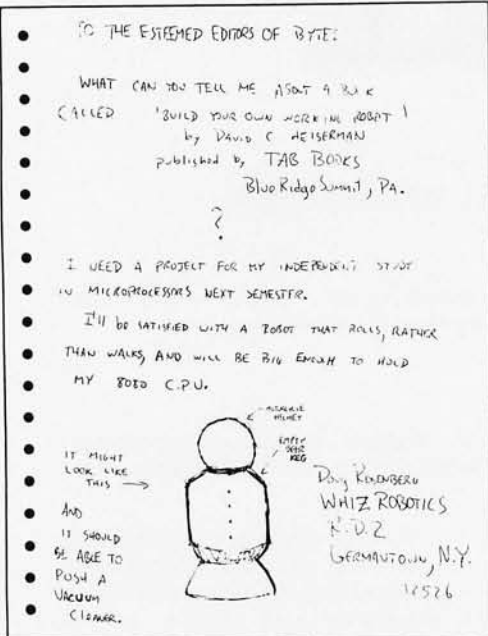 TO THE ESTEEMED EDITORS OF BYTE:
WHAT CAN YOU TELL ME ABOUT A BOOK
CALLED 'BUILD YOUR OWN WORKING ROBOT'
by DAVID C HEISERMAN
published by TAB BOOKS
Blue Ridge Summit, PA.
?
I NEED A PROJECT FOR MY INDEPENDENT STUDY
IN MICROPROCESSORS NEXT SEMESTER.
I'll be SATISFIED WITH A ROBOT THAT ROLLS, RATHER
THAN WALKS, AND WILL BE BIG ENOUGH TO HOLD
MY 8080 C.P.U.
IT MIGHT
LOOK LIKE
THIS →
AND
IT SHOULD
BE ABLE TO
PUSH A
VACUUM
CLEANER.
HELMET
EMPTY
BEER
KEG
Doug Rosenberg
WHIZ ROBOTICS
R.D.2
GERMANTOWN, N.Y.
12526